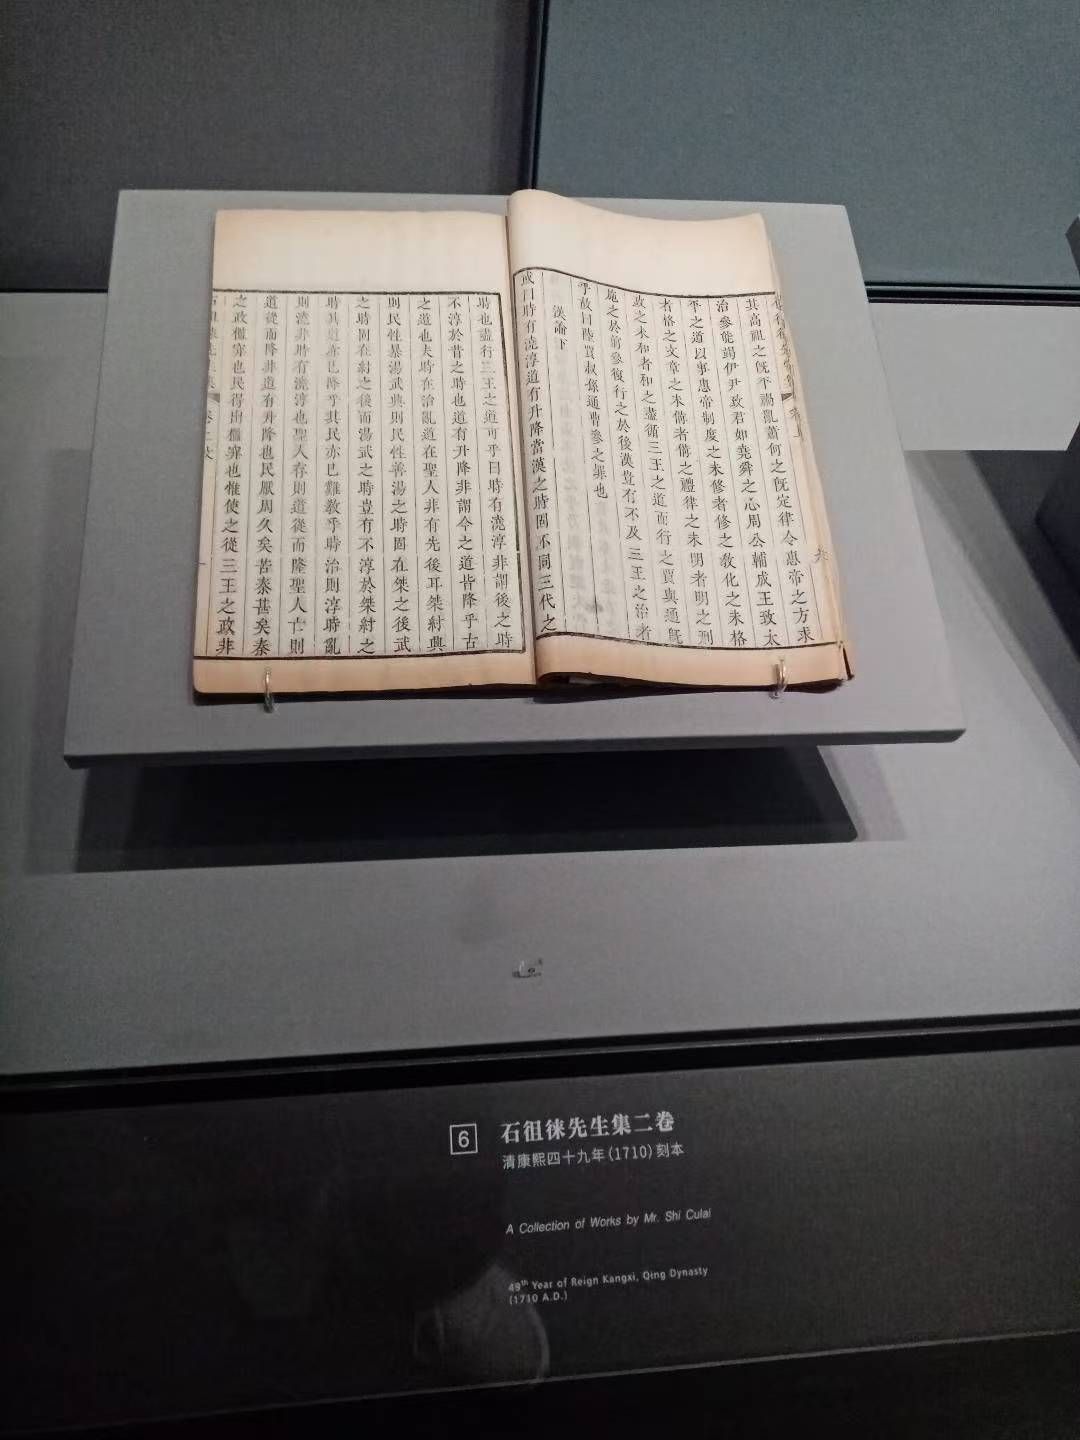 其高祖之旣平禍亂蕭何之旣定律令惠帝之方求
治參能竭伊尹致君如堯舜之心周公輔成王致太
平之道以事惠帝制度之未修者修之敎化之未格
者格之文章之未備者備之禮律之未明者明之刑
政之未和者和之盡循三王之道而行之賈與通旣
施之於前參復行之於後漢豈有不及三王之治者
乎故曰陸賈叔孫通曹參之罪也
漢論下
或曰時有澆淳道有升降當漢之時固不同三代之
時也盡行三王之道可乎曰時有澆淳非謂後之時
不淳於昔之時也道有升降非謂今之道皆降乎古
之道也夫時在治亂道在聖人非有先後耳桀紂興
則民性暴湯武興則民性善湯之時固在桀之後武
之時固在紂之後而湯武之時豈有不淳於桀紂之
時其道亦已降乎其民亦已難敎乎時治則淳時亂
則澆非時有澆淳也聖人存則道從而隆聖人亡則
道從而降非道有升降也民厭周久矣苦秦甚矣秦
之政僵弊也民得出僵弊也惟使之從三王之政非
6 石徂徠先生集二卷
清康熙四十九年(1710)刻本
A Collection of Works by Mr. Shi Culai
49th Year of Reign Kangxi, Qing Dynasty
(1710 A.D.)